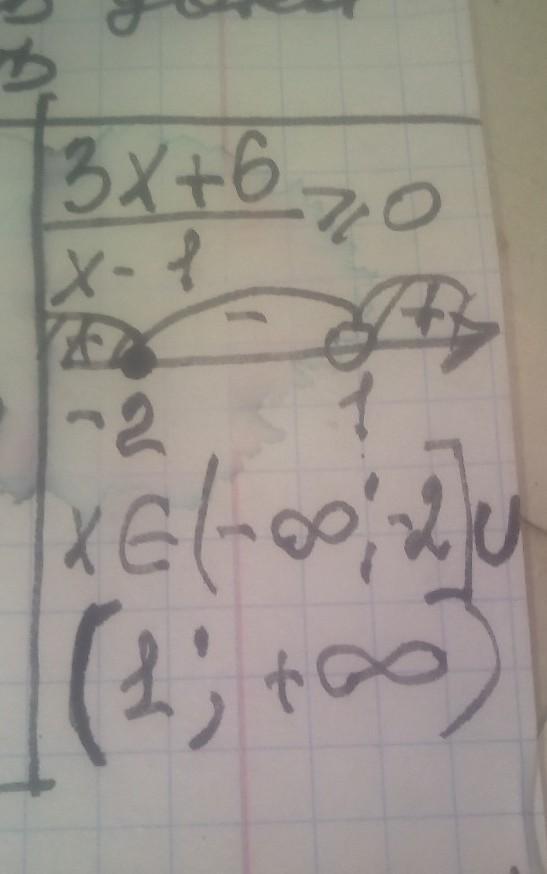 3x+6
x-1
⩾0
+ - +
-2 1
x∈(-∞;-2]∪
(1;+∞)